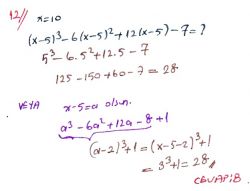 12//
x=10
(x-5)³-6(x-5)²+12(x-5)-7=?
5³-6.5²+12.5-7
125-150+60-7=28
VEYA x-5=a olsun.
a³-6a²+12a-8+1
(a-2)³+1=(x-5-2)³+1
=3³+1=28//
CEVAP:B